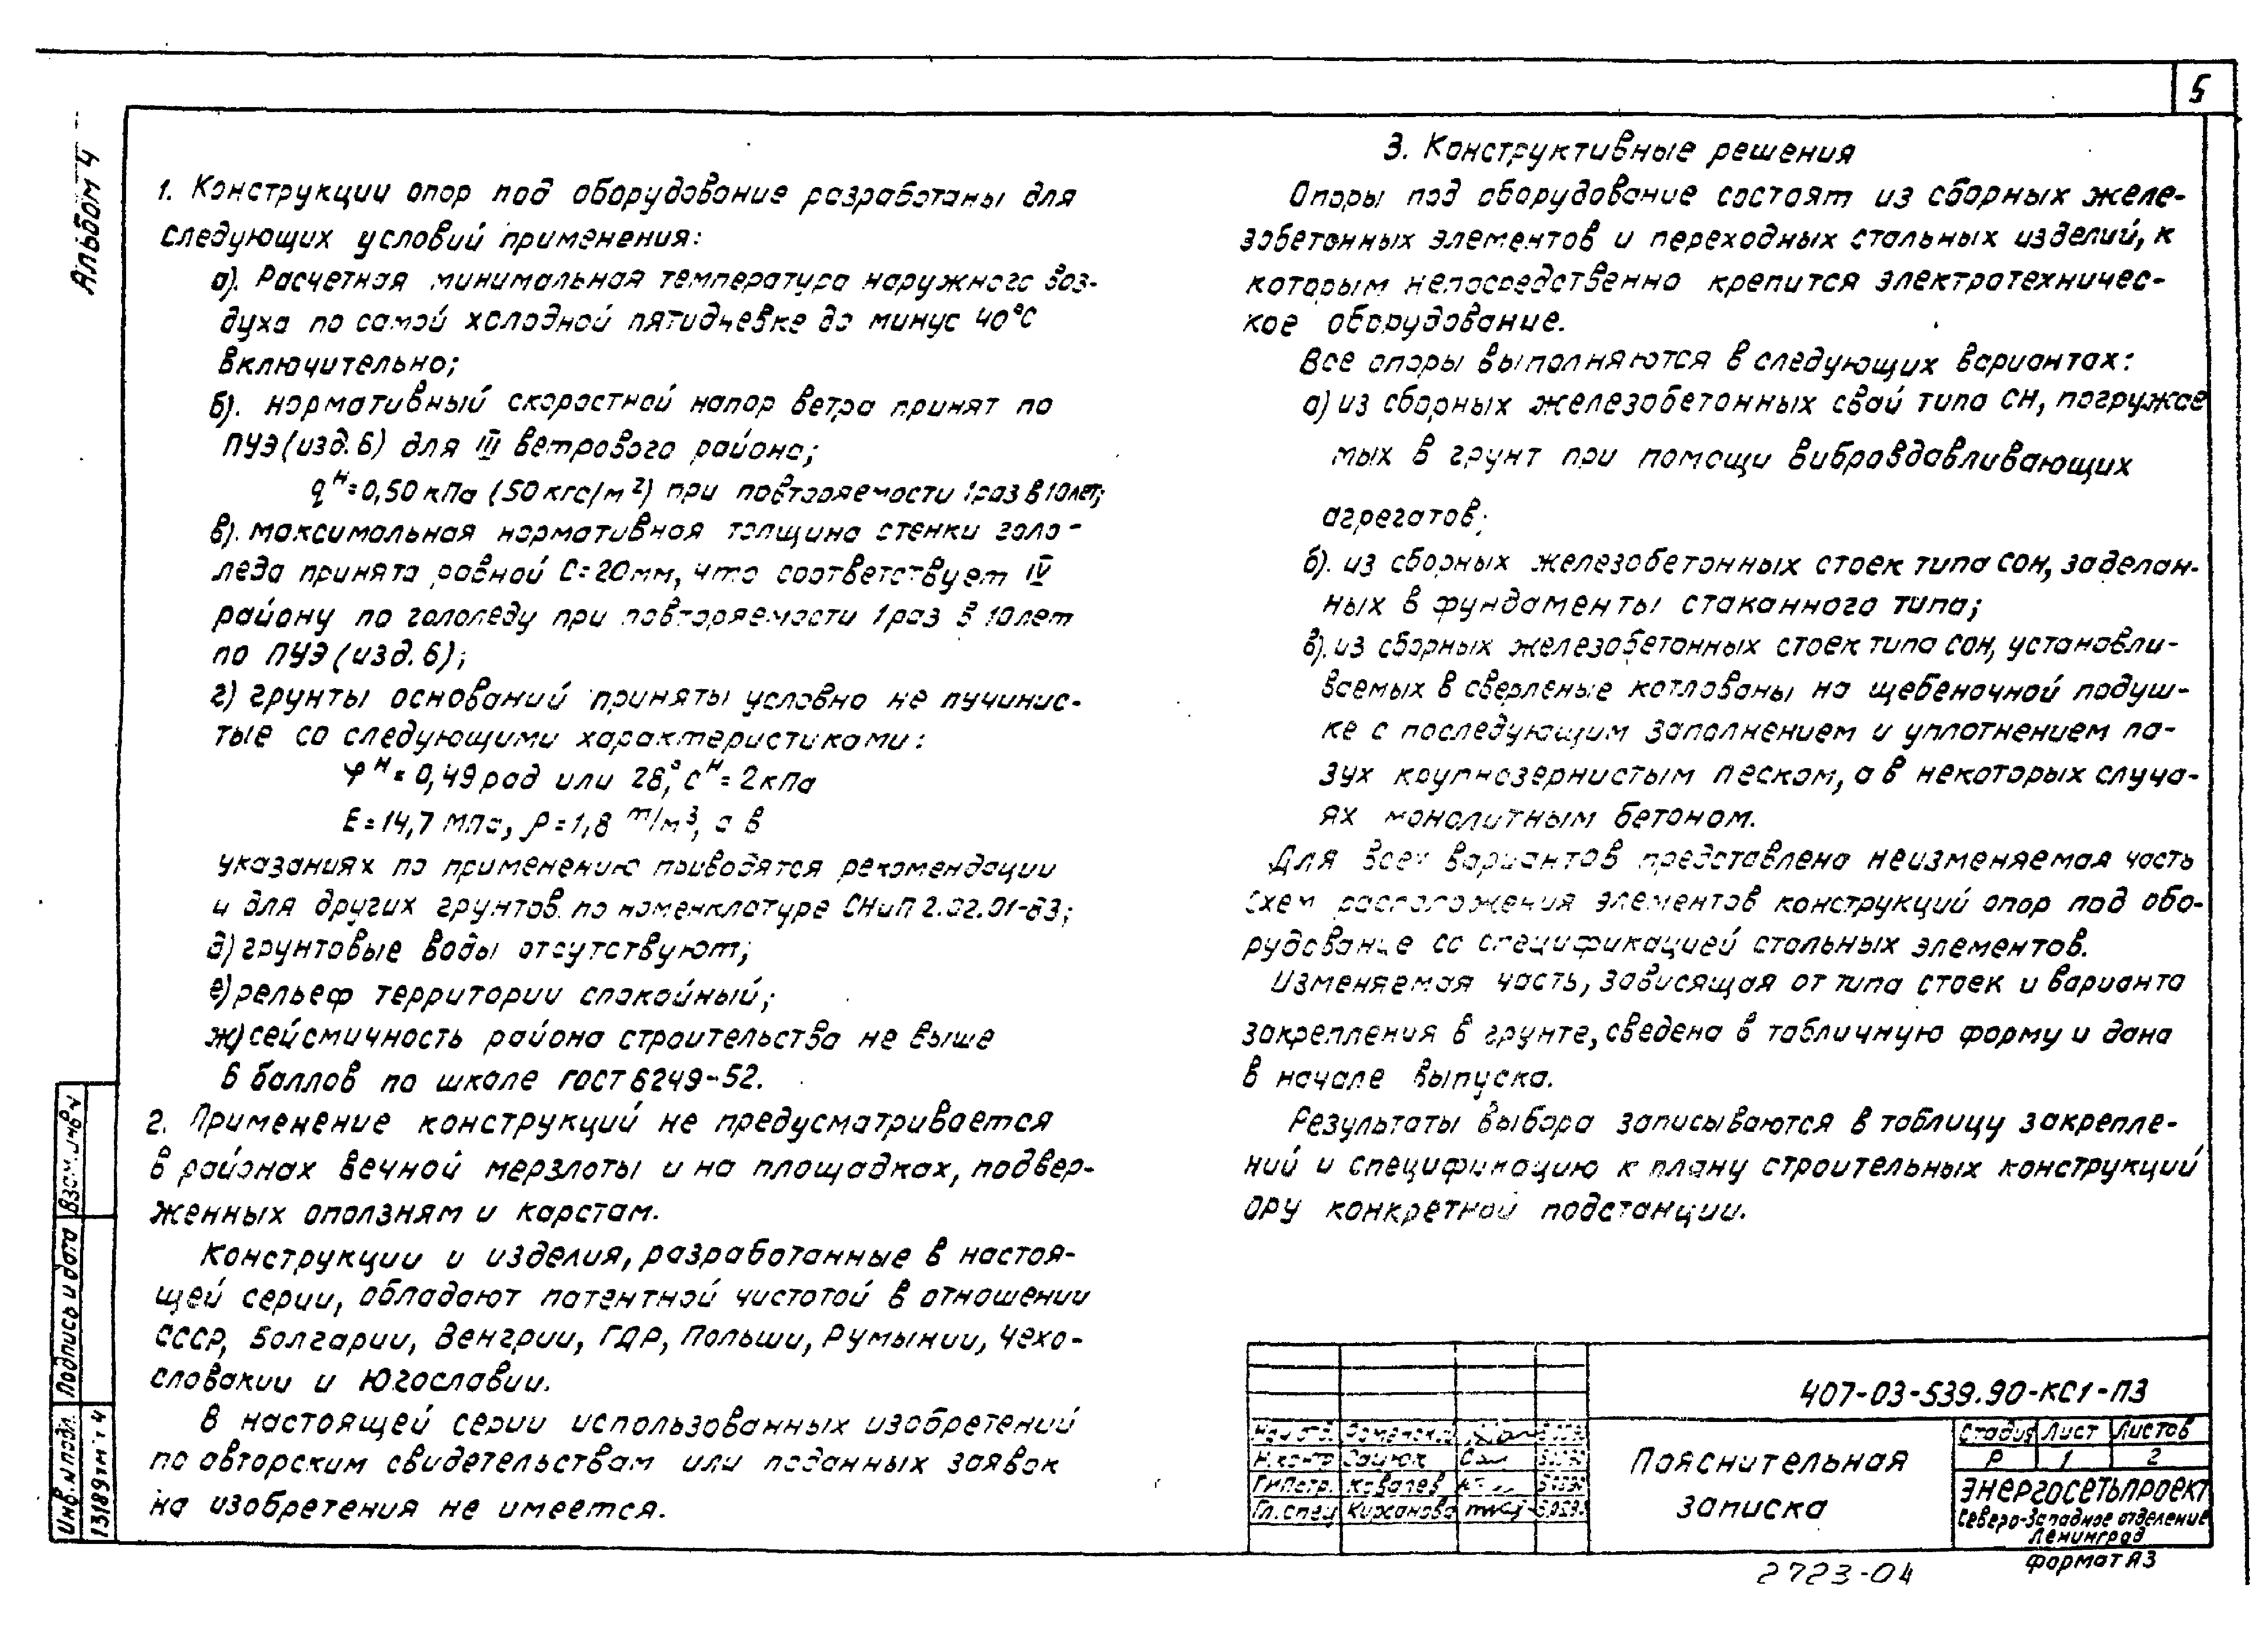 5
Альбом 4
1. Конструкции опор под оборудование разработаны для
следующих условий применения:
а). Расчетная минимальная температура наружного воз-
духа по самой холодной пятидневке до минус 40°С
включительно;
б). нормативный скоростной напор ветра принят по
ПУЭ (изд. 6) для III ветрового района;
qᴴ=0,50 кПа (50 кгс/м²) при повторяемости 1 раз в 10 лет;
в). максимальная нормативная толщина стенки голо-
леда принята равной С=20мм, что соответствует IV
району по гололеду при повторяемости 1 раз в 10 лет
по ПУЭ (изд. 6);
г) грунты оснований приняты условно не пучинис-
тые со следующими характеристиками:
φᴴ= 0,49 рад или 28°, Сᴴ= 2кПа
Е=14,7 МПа, ρ=1,8 т/м³, а в
указаниях по применению приводятся рекомендации
и для других грунтов по номенклатуре СНиП 2.02.01-83;
д) грунтовые воды отсутствуют;
е) рельеф территории спокойный;
ж) сейсмичность района строительства не выше
6 баллов по шкале ГОСТ 6249-52.
2. Применение конструкций не предусматривается
в районах вечной мерзлоты и на площадках, подвер-
женных оползням и карстам.
Конструкции и изделия, разработанные в настоя-
щей серии, обладают патентной чистотой в отношении
СССР, Болгарии, Венгрии, ГДР, Польши, Румынии, Чехо-
словакии и Югославии.
В настоящей серии использованных изобретений
по авторским свидетельствам или поданных заявок
на изобретения не имеется.
3. Конструктивные решения
Опоры под оборудование состоят из сборных желе-
зобетонных элементов и переходных стальных изделий, к
которым непосредственно крепится электротехничес-
кое оборудование.
Все опоры выполняются в следующих вариантах:
а) из сборных железобетонных свай типа СН, погружае
мых в грунт при помощи вибровдавливающих
агрегатов;
б). из сборных железобетонных стоек типа СОН, заделан-
ных в фундаменты стаканного типа;
в). из сборных железобетонных стоек типа СОН, установли-
ваемых в сверленые котлованы на щебеночной подуш-
ке с последующим заполнением и уплотнением па-
зух крупнозернистым песком, а в некоторых случа-
ях монолитным бетоном.
Для всех вариантов представлена неизменяемая часть
схем расположения элементов конструкций опор под обо-
рудование со спецификацией стальных элементов.
Изменяемая часть, зависящая от типа стоек и варианта
закрепления в грунте, сведена в табличную форму и дана
в начале выпуска.
Результаты выбора записываются в таблицу закрепле-
ний и спецификацию к плану строительных конструкций
ОРУ конкретной подстанции.
407-03-539.90-КС1-ПЗ
Нач. отд. Роменский
Н.контр Зацюк
ГИПстр. Ковалев
Гл. спец Кирсанова
Пояснительная
записка
Стадия Лист Листов
Р 1 2
Энергосетьпроект
Северо-Западное отделение
Ленинград
Формат А3
2723-04
Взам. инв №
Подпись и дата
Инв. № подл.
13189тм-т4